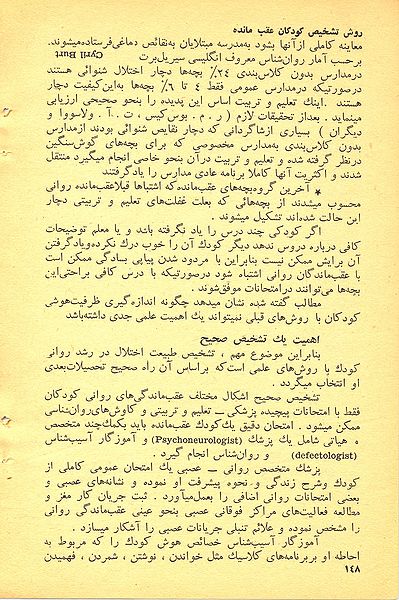 روش تشخیص کودکان عقب مانده
معاینه کاملی از آنها بشود به‌مدرسه مبتلایان به‌نقائص دماغی‌فرستاده میشوند.
برحسب آمار روان‌شناس معروف انگلیسی سیریل‌برت Cyril Burt
درمدارس بدون کلاس‌بندی ۲۴٪ بچه‌ها دچار اختلال شنوائی هستند
درصورتیکه درمدارس عمومی فقط ٤ تا ٦٪ بچه‌ها به‌این‌کیفیت دچار
هستند . اینك تعلیم و تربیت اساس این پدیده را بنحو صحیحی ارزیابی
مینماید . بعداز تحقیقات لازم ( ر . م . بوس‌کیس ، ت . آ . ولاسووا و
دیگران ) بسیاری ازشاگردانی که دچار نقایص شنوائی بودند ازمدارس
بدون کلاس‌بندی به‌مدارس مخصوصی که برای بچه‌های گوش‌سنگین
درنظر گرفته شده و تعلیم و تربیت درآن بنحو خاصی انجام میگیرد منتقل
شدند و اکثریت آنها کاملا برنامه عادی مدارس را یادگرفتند
* آخرین گروه‌بچه‌های عقب‌مانده که اشتباها قبلاعقب‌مانده روانی
محسوب میشدند از بچه‌هائی که بعلت غفلت‌های تعلیم و تربیتی دچار
این حالت شده‌اند تشکیل میشوند .
اگر کودکی چند درس را یاد نگرفته باشد و یا معلم توضیحات
کافی درباره دروس ندهد دیگر کودك آن را خوب درك نکرده‌ویادگرفتن
آن برایش ممکن نیست بنابراین با مردود شدن پیاپی بسادگی ممکن است
با عقب‌ماندگان روانی اشتباه شود درصورتیکه با درس کافی براحتی‌این
بچه‌ها می‌توانند درامتحانات موفق‌شوند .
مطالب گفته شده نشان میدهد چگونه اندازه‌گیری ظرفیت‌هوشی
کودکان با روش‌های قبلی نمیتواند یك اهمیت علمی جدی داشته‌باشد
اهمیت یك تشخیص صحیح
بنابراین موضوع مهم ، تشخیص طبیعت اختلال در رشد روانی
کودك با روش‌های علمی است‌که براساس آن راه صحیح تحصیلات‌بعدی
او انتخاب میگردد .
تشخیص صحیح اشکال مختلف عقب‌ماندگی‌های روانی کودکان
فقط با امتحانات پیچیده پزشکی ــ تعلیم و تربیتی و کاوش‌های‌روان‌شناسی
ممکن میشود . امتحان دقیق یك‌کودك عقب‌مانده باید بکمك‌چند متخصص
ه هیأتی شامل یك پزشك (Psychoneurologist) و آموزگار آسیب‌شناس
(defectologist) و روان‌شناس انجام گیرد .
پزشك متخصص روانی ــ عصبی یك امتحان عمومی کاملی از
کودك وشرح زندگی و نحوه پیشرفت او نموده و نشانه‌های عصبی و
بعضی امتحانات روانی اضافی را بعمل‌میآورد . ثبت جریان کار مغز و
مطالعه فعالیت‌های مراکز فوقانی عصبی بنحو عینی عقب‌ماندگی روانی
را مشخص نموده و علائم تنبلی جریانات عصبی را آشکار میسازد .
آموزگار آسیب‌شناس خصائص هوش کودك را که مربوط به
احاطه او بربرنامه‌های کلاسیك مثل خواندن ، نوشتن ، شمردن ، فهمیدن
۱٤۸